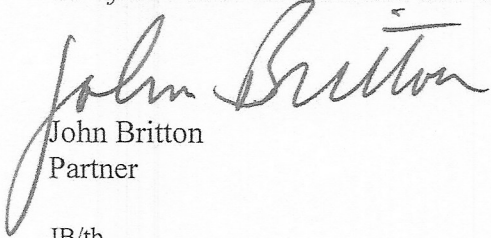 John Britton
John Britton
Partner
JB/th